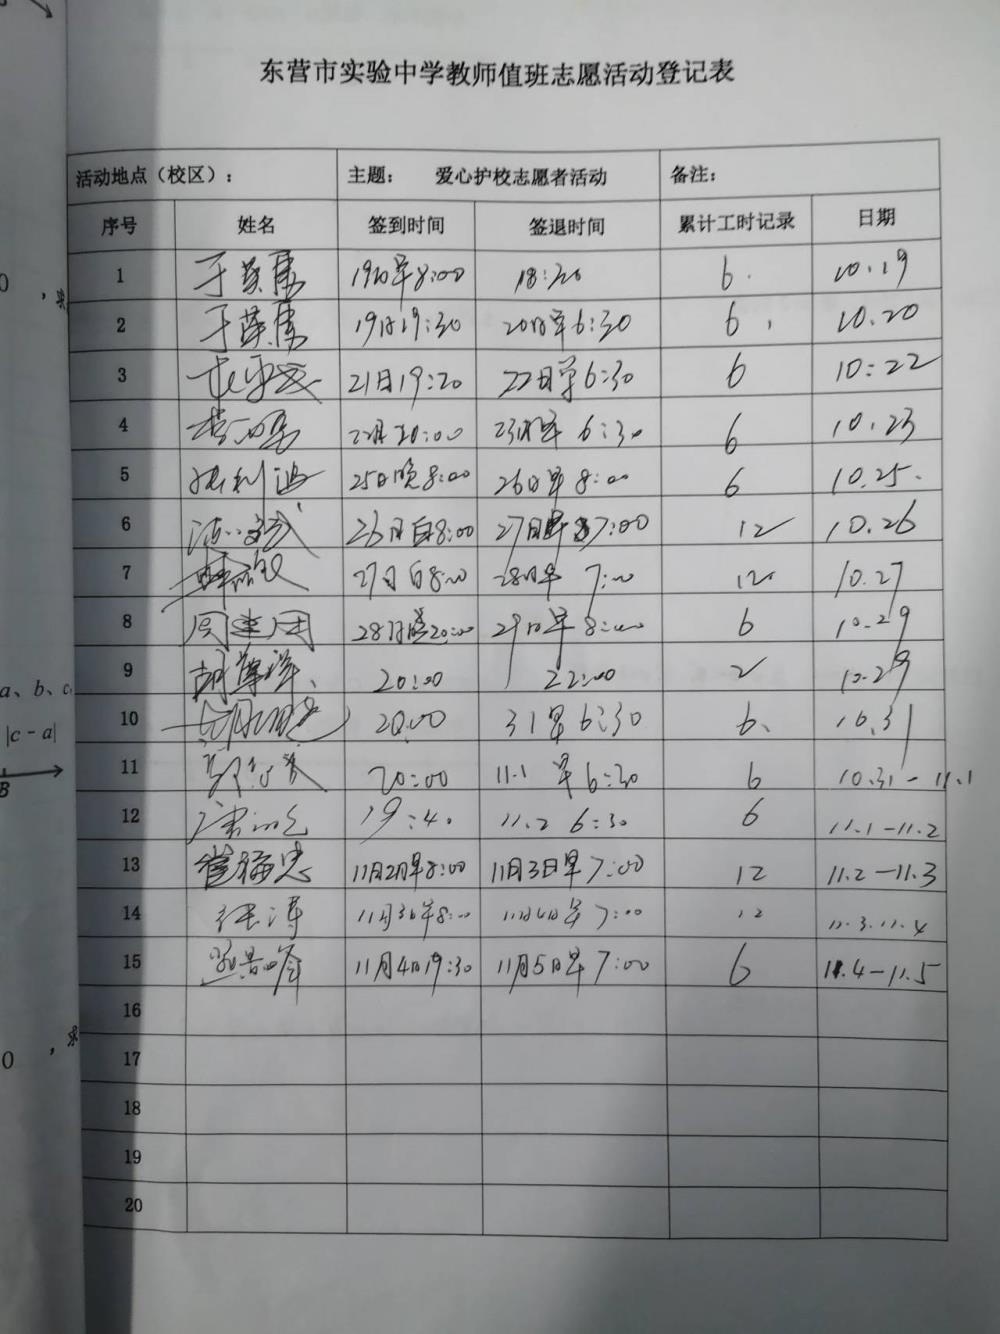 东营市实验中学教师值班志愿活动登记表
活动地点（校区）： 主题： 爱心护校志愿者活动 备注：
序号 姓名 签到时间 签退时间 累计工时记录 日期
1 19日早8:00 18:20 6. 10.19
2 19日19:30 20日早6:30 6. 10.20
3 21日19:20 22日早6:30 6 10:22
4 20:00 23日早 6:30 6 10.23
5 张利波 25日晚8:00 26日早8:00 6 10.25.
6 26日白8:00 27日早7:00 12 10.26
7 27日白8:00 28日早 7:00 12 10.27
8 周建国 28日晚20:00 29日早8:00 6 10.29
9 胡尊祥 20:00 22:00 2 10.29
10 20:00 31早6:30 6. 10.31
11 20:00 11.1 早6:30 6 10.31-11.1
12 19:40 11.2 6:30 6 11.1-11.2
13 崔福忠 11月2日早8:00 11月3日早7:00 12 11.2-11.3
14 11月3日早8:00 11月4日早7:00 12 11.3.11.4
15 11月4日19:30 11月5日早7:00 6 11.4-11.5
16
17
18
19
20
0 , 求
a、b、c,
|c - a|
B
0 , 求